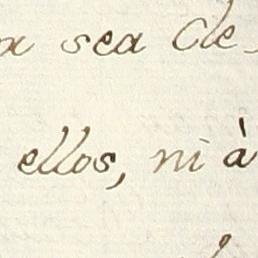 sea de
ellos, ni à